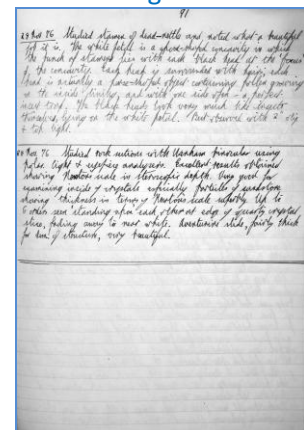 91
23 Mar 76 Studied stamen of dead-nettle and noted what a beautiful
job it is. The white petal is a
the bunch of stamens lies with each black head at the "focus"
of the concavity. Each head is surrounded with hairs; each
head is actually a purse-shaped object containing pollen grains
on the inside, and with one side often - a perfect
The black heads look very much like insects
themselves, lying on the white petal. Best observed with 2" obj
& top light.
24 Mar 76 Studied rock sections with Wenham binocular using
polar. light & eyepiece analyser. Excellent results obtained
showing Newtons scale in stereoscopic depth. Very good for
examining inside of crystals especially particles of sandstone
showing thickness in terms of Newtons scale superbly. Up to
6 orders seen standing upon each other at edge of quartz crystal
slice, fading away to near white. Aventurine slide, fairly thick
for of structure, very beautiful.